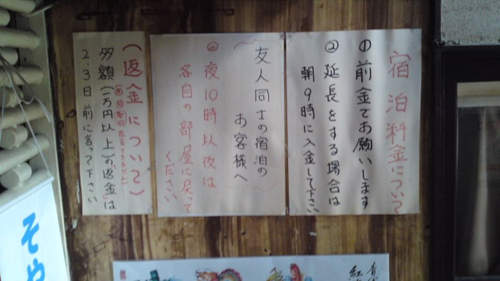 宿泊料金について
①前金でお願いします
②延長をする場合は
朝9時に入金して下さい
友人同士の宿泊の
お客様へ
◎夜10時以後は
各自の部屋に戻って
ください
(返金について)
多額(一万円以上)の返金は
2.3日前に言って下さい
そや